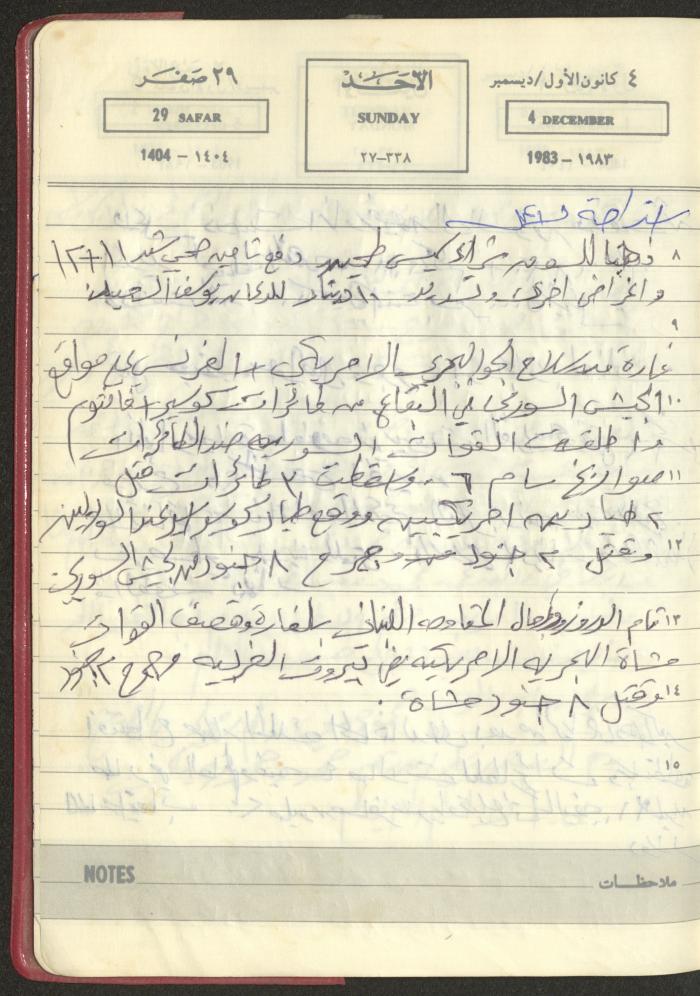 ٢٩ صفر
الأحد
٤ كانون الأول/ديسمبر
29 SAFAR
SUNDAY
4 DECEMBER
1404 - ١٤٠٤
٢٧-٣٣٨
1983 - ١٩٨٣
استراحة
٨ ذهبنا للسوق شراء كيس طحين دفع تامين صحي شهر ١١+١٢
واغراض اخرى وتسديد ١٠ دينار للدكان يوسف السعيد
٩
غارة من سلاح الجو البحري الامريكي + الفرنسي على مواقع
١٠ الجيش السوري في البقاع من طائرات + فانتوم
واطلقت القوات السورية ضد الطائرات
١١ صواريخ سام ٦ واسقطت ٣ طائرات قتل
٢ طيارين امريكيين ووقع طيار عند السوريين
١٢ وقتل ٢ جنود وجرح ٨ جنود من الجيش السوري
١٣ قام الدروز ورجال المقاومه اللبناني بالغارة وقصف القوات
مشاة البحريه الامريكيه في بيروت الغربيه وجرح ٢ جنود
١٤ وقتل ٨ جنود مشاة .
١٥
NOTES
ملاحظات